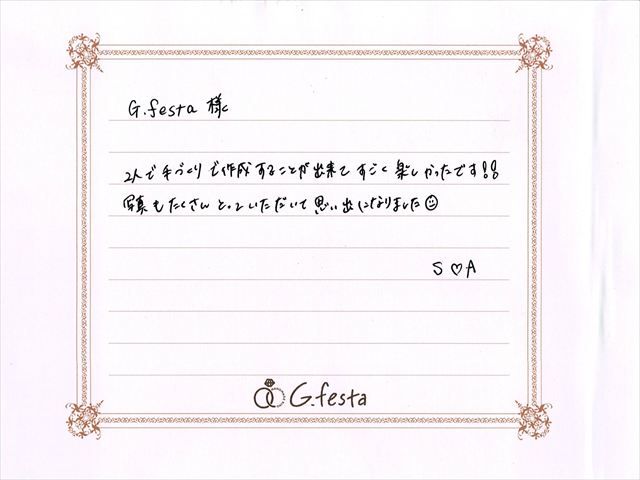 G.festa 様
2人で手づくりで作成することが出来てすごく楽しかったです!!
写真もたくさんとっていただいて思い出になりました☺
S♡A
G.festa